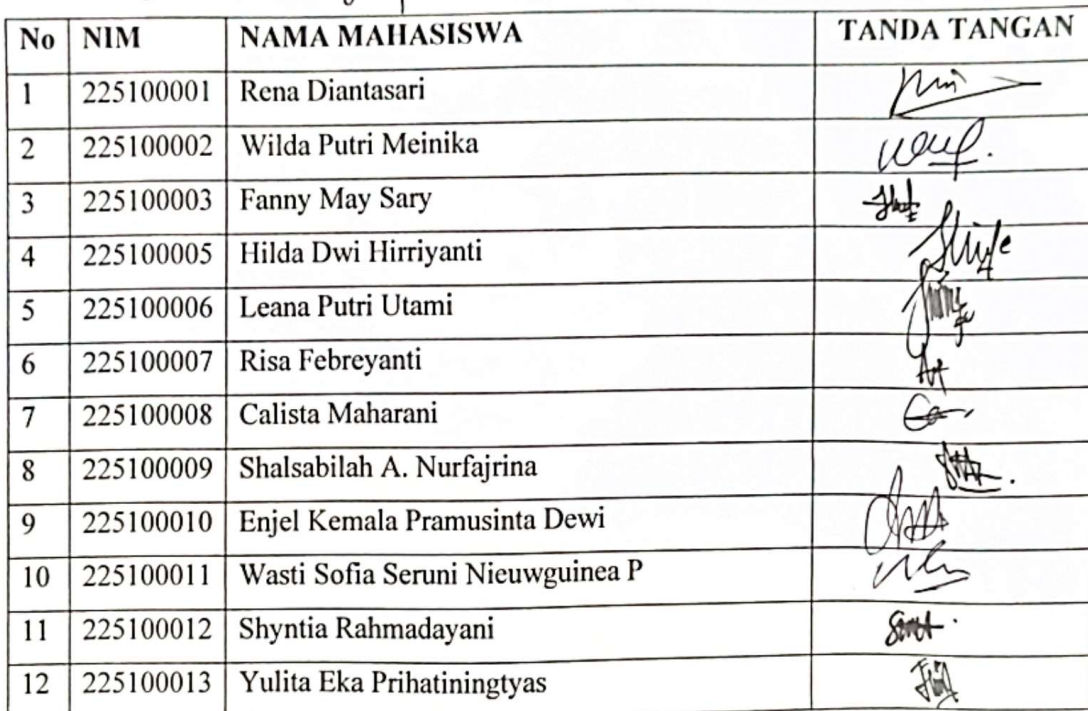 No NIM NAMA MAHASISWA TANDA TANGAN
1 225100001 Rena Diantasari
2 225100002 Wilda Putri Meinika
3 225100003 Fanny May Sary
4 225100005 Hilda Dwi Hirriyanti
5 225100006 Leana Putri Utami
6 225100007 Risa Febreyanti
7 225100008 Calista Maharani
8 225100009 Shalsabilah A. Nurfajrina
9 225100010 Enjel Kemala Pramusinta Dewi
10 225100011 Wasti Sofia Seruni Nieuwguinea P
11 225100012 Shyntia Rahmadayani
12 225100013 Yulita Eka Prihatiningtyas